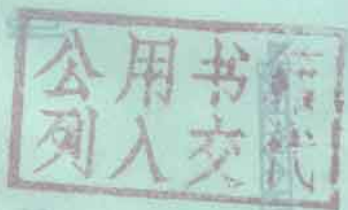 公用书
列入交代